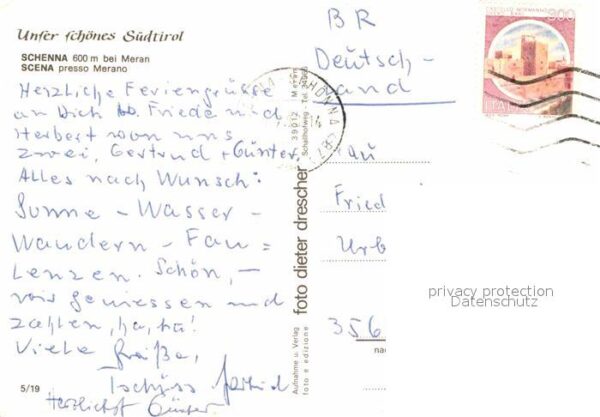 Unser schönes Südtirol
SCHENNA 600 m bei Meran
SCENA presso Merano
Herzliche Feriengrüsse
an Dich Friede und
Herbert von uns
zwei, Gertrud + Günter.
Alles nach Wunsch:
Sonne – Wasser –
Wandern – Fau =
Lenzen. Schön, –
wir geniessen und
zahlen, ha, ha!
Viele Grüße,
Tschüss Gertrud
Herzlichst Günter
5/19
Aufnahme u. Verlag
foto e edizione
foto dieter drescher
39012 Meran
Schalhofweg - Tel.
BR
Deutsch-
land
Fried
Urb
356
CASTELLO NORMANNO
300
ITALIA
privacy protection
Datenschutz